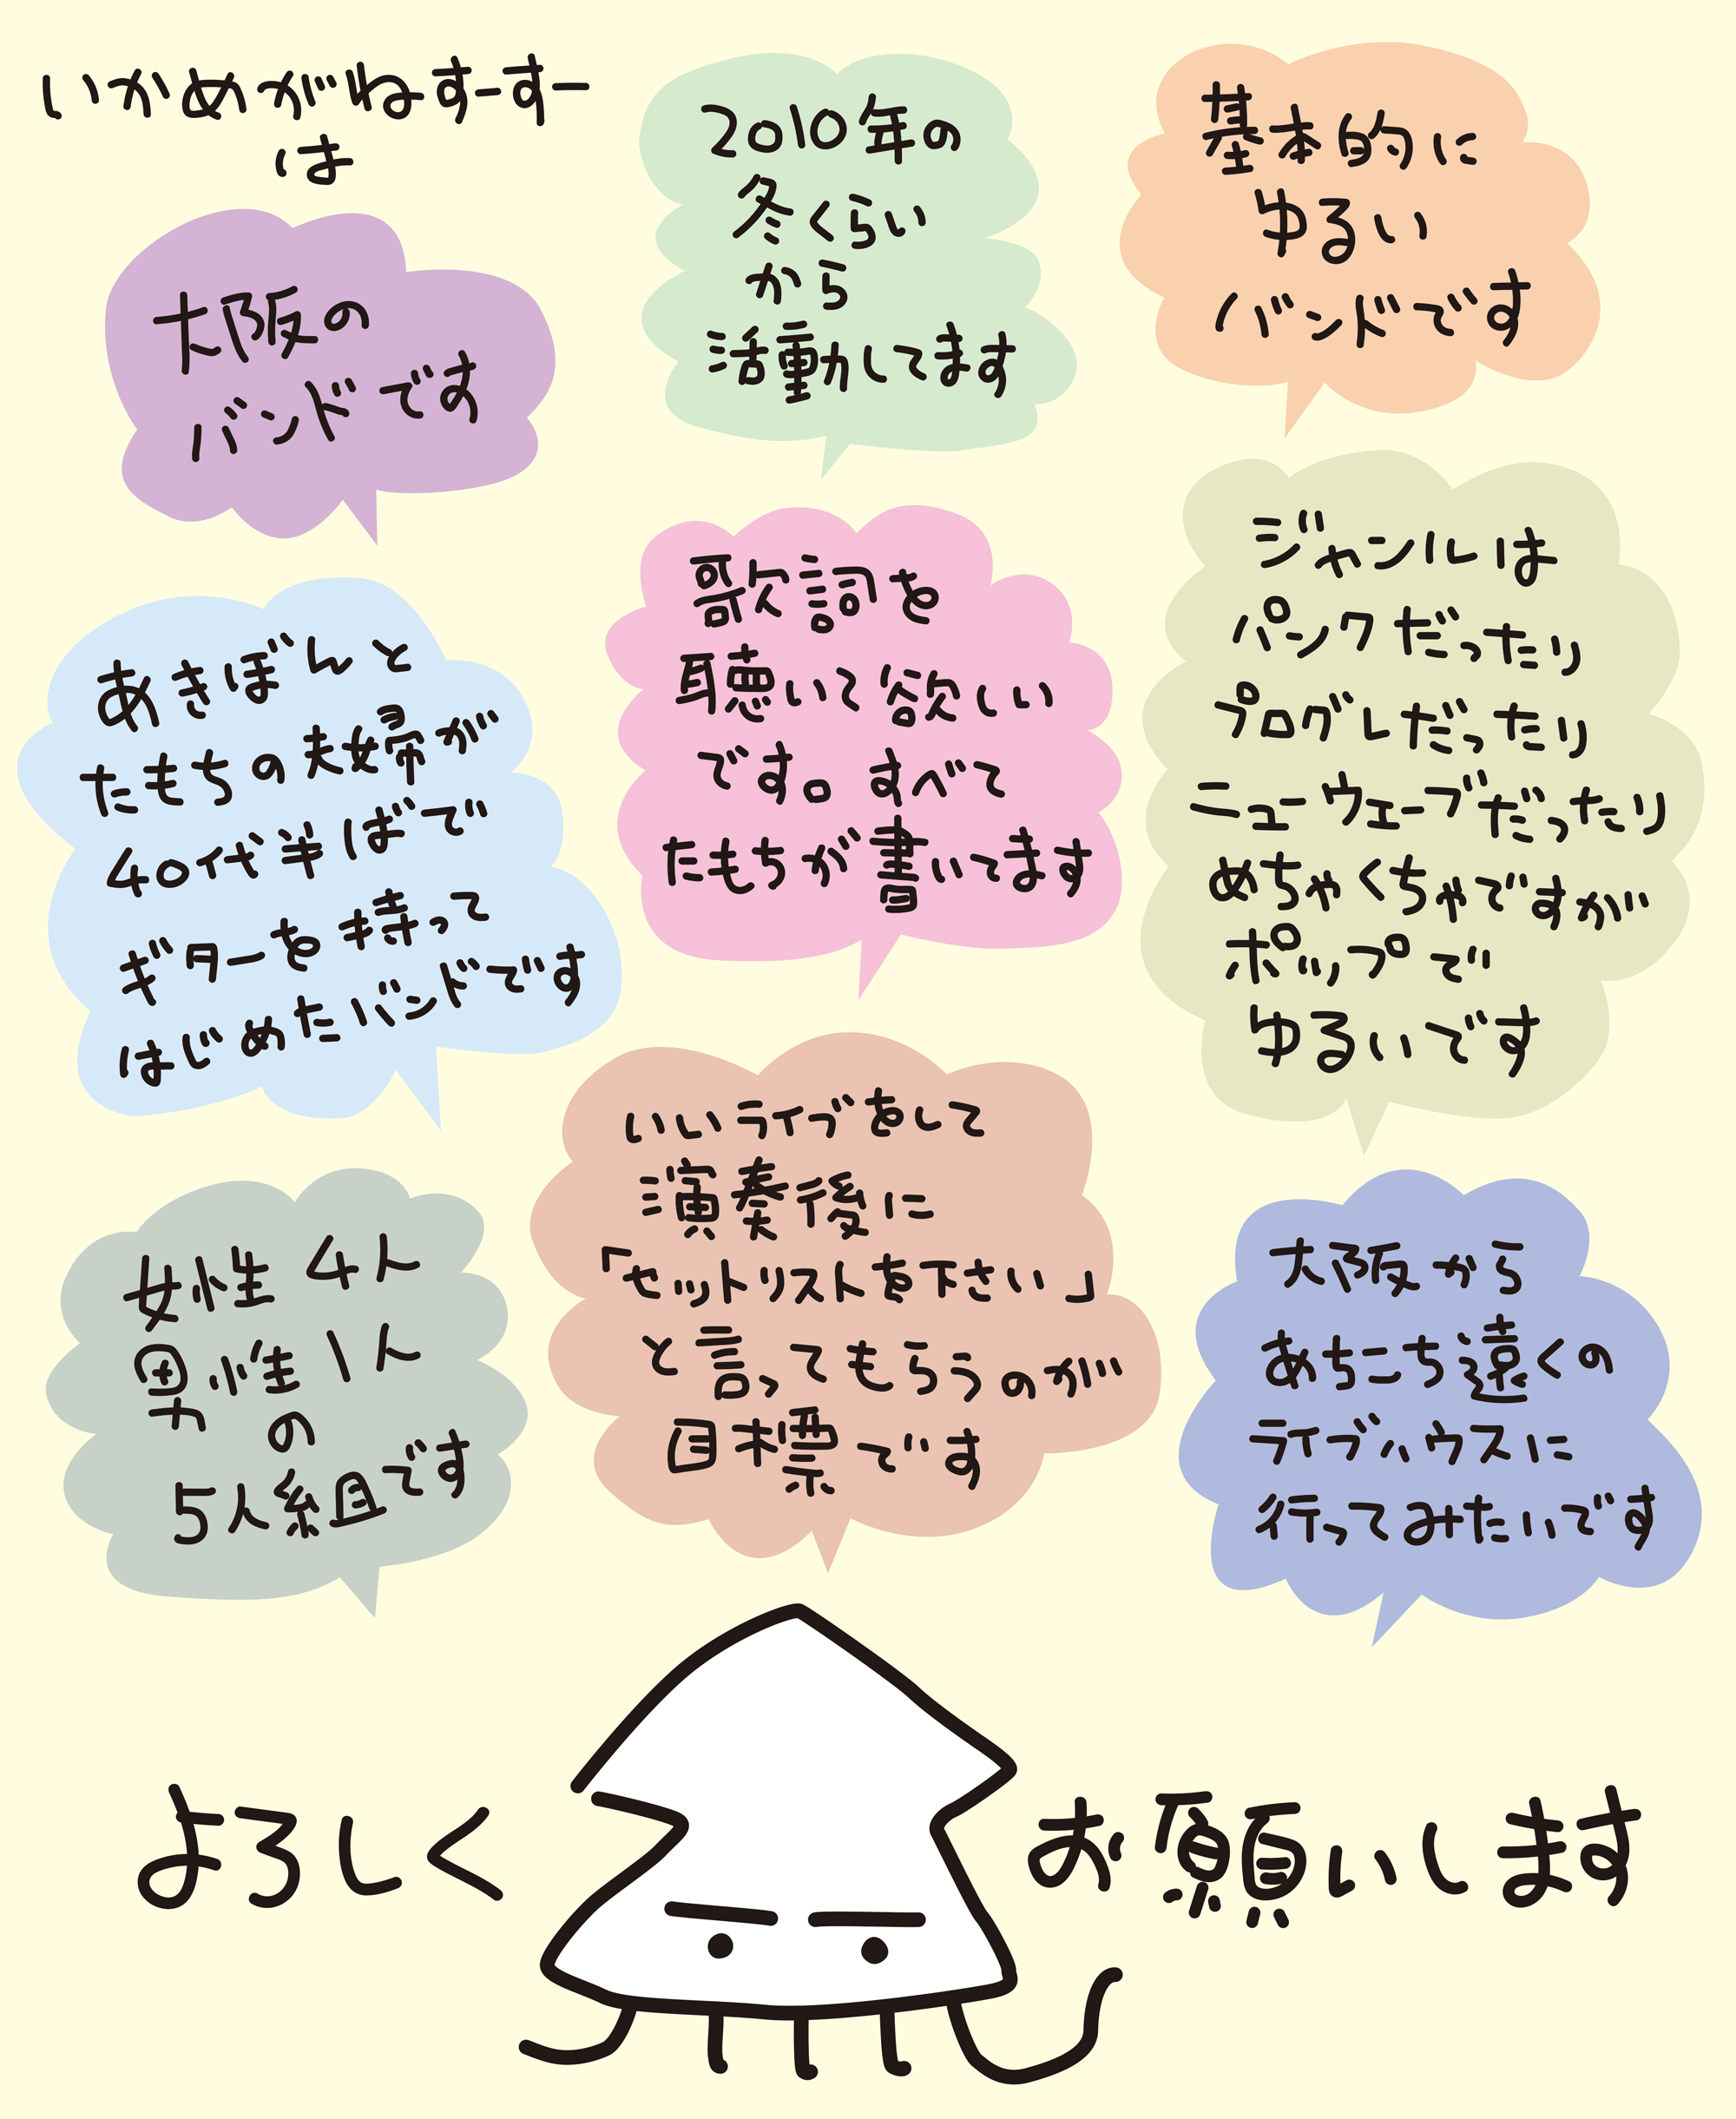 いかめがねすーすー
は
大阪の
バンドです
2010年の
冬くらい
から
活動してます
基本的に
ゆるい
バンドです
あきぼしと
たもちの夫婦が
40代半ばで
ギターを持って
はじめたバンドです
歌詞を
聴いて欲しい
です。すべて
たもちが書いてます
ジャンルは
パンクだったり
プログレだったり
ニューウェーブだったり
めちゃくちゃですが
ポップで
ゆるいです
女性 4人
男性 1人
の
5人組です
いいライブをして
演奏後に
「セットリストを下さい」
と言ってもらうのが
目標です
大阪から
あちこち遠くの
ライブハウスに
行ってみたいです
よろしく
お願いします